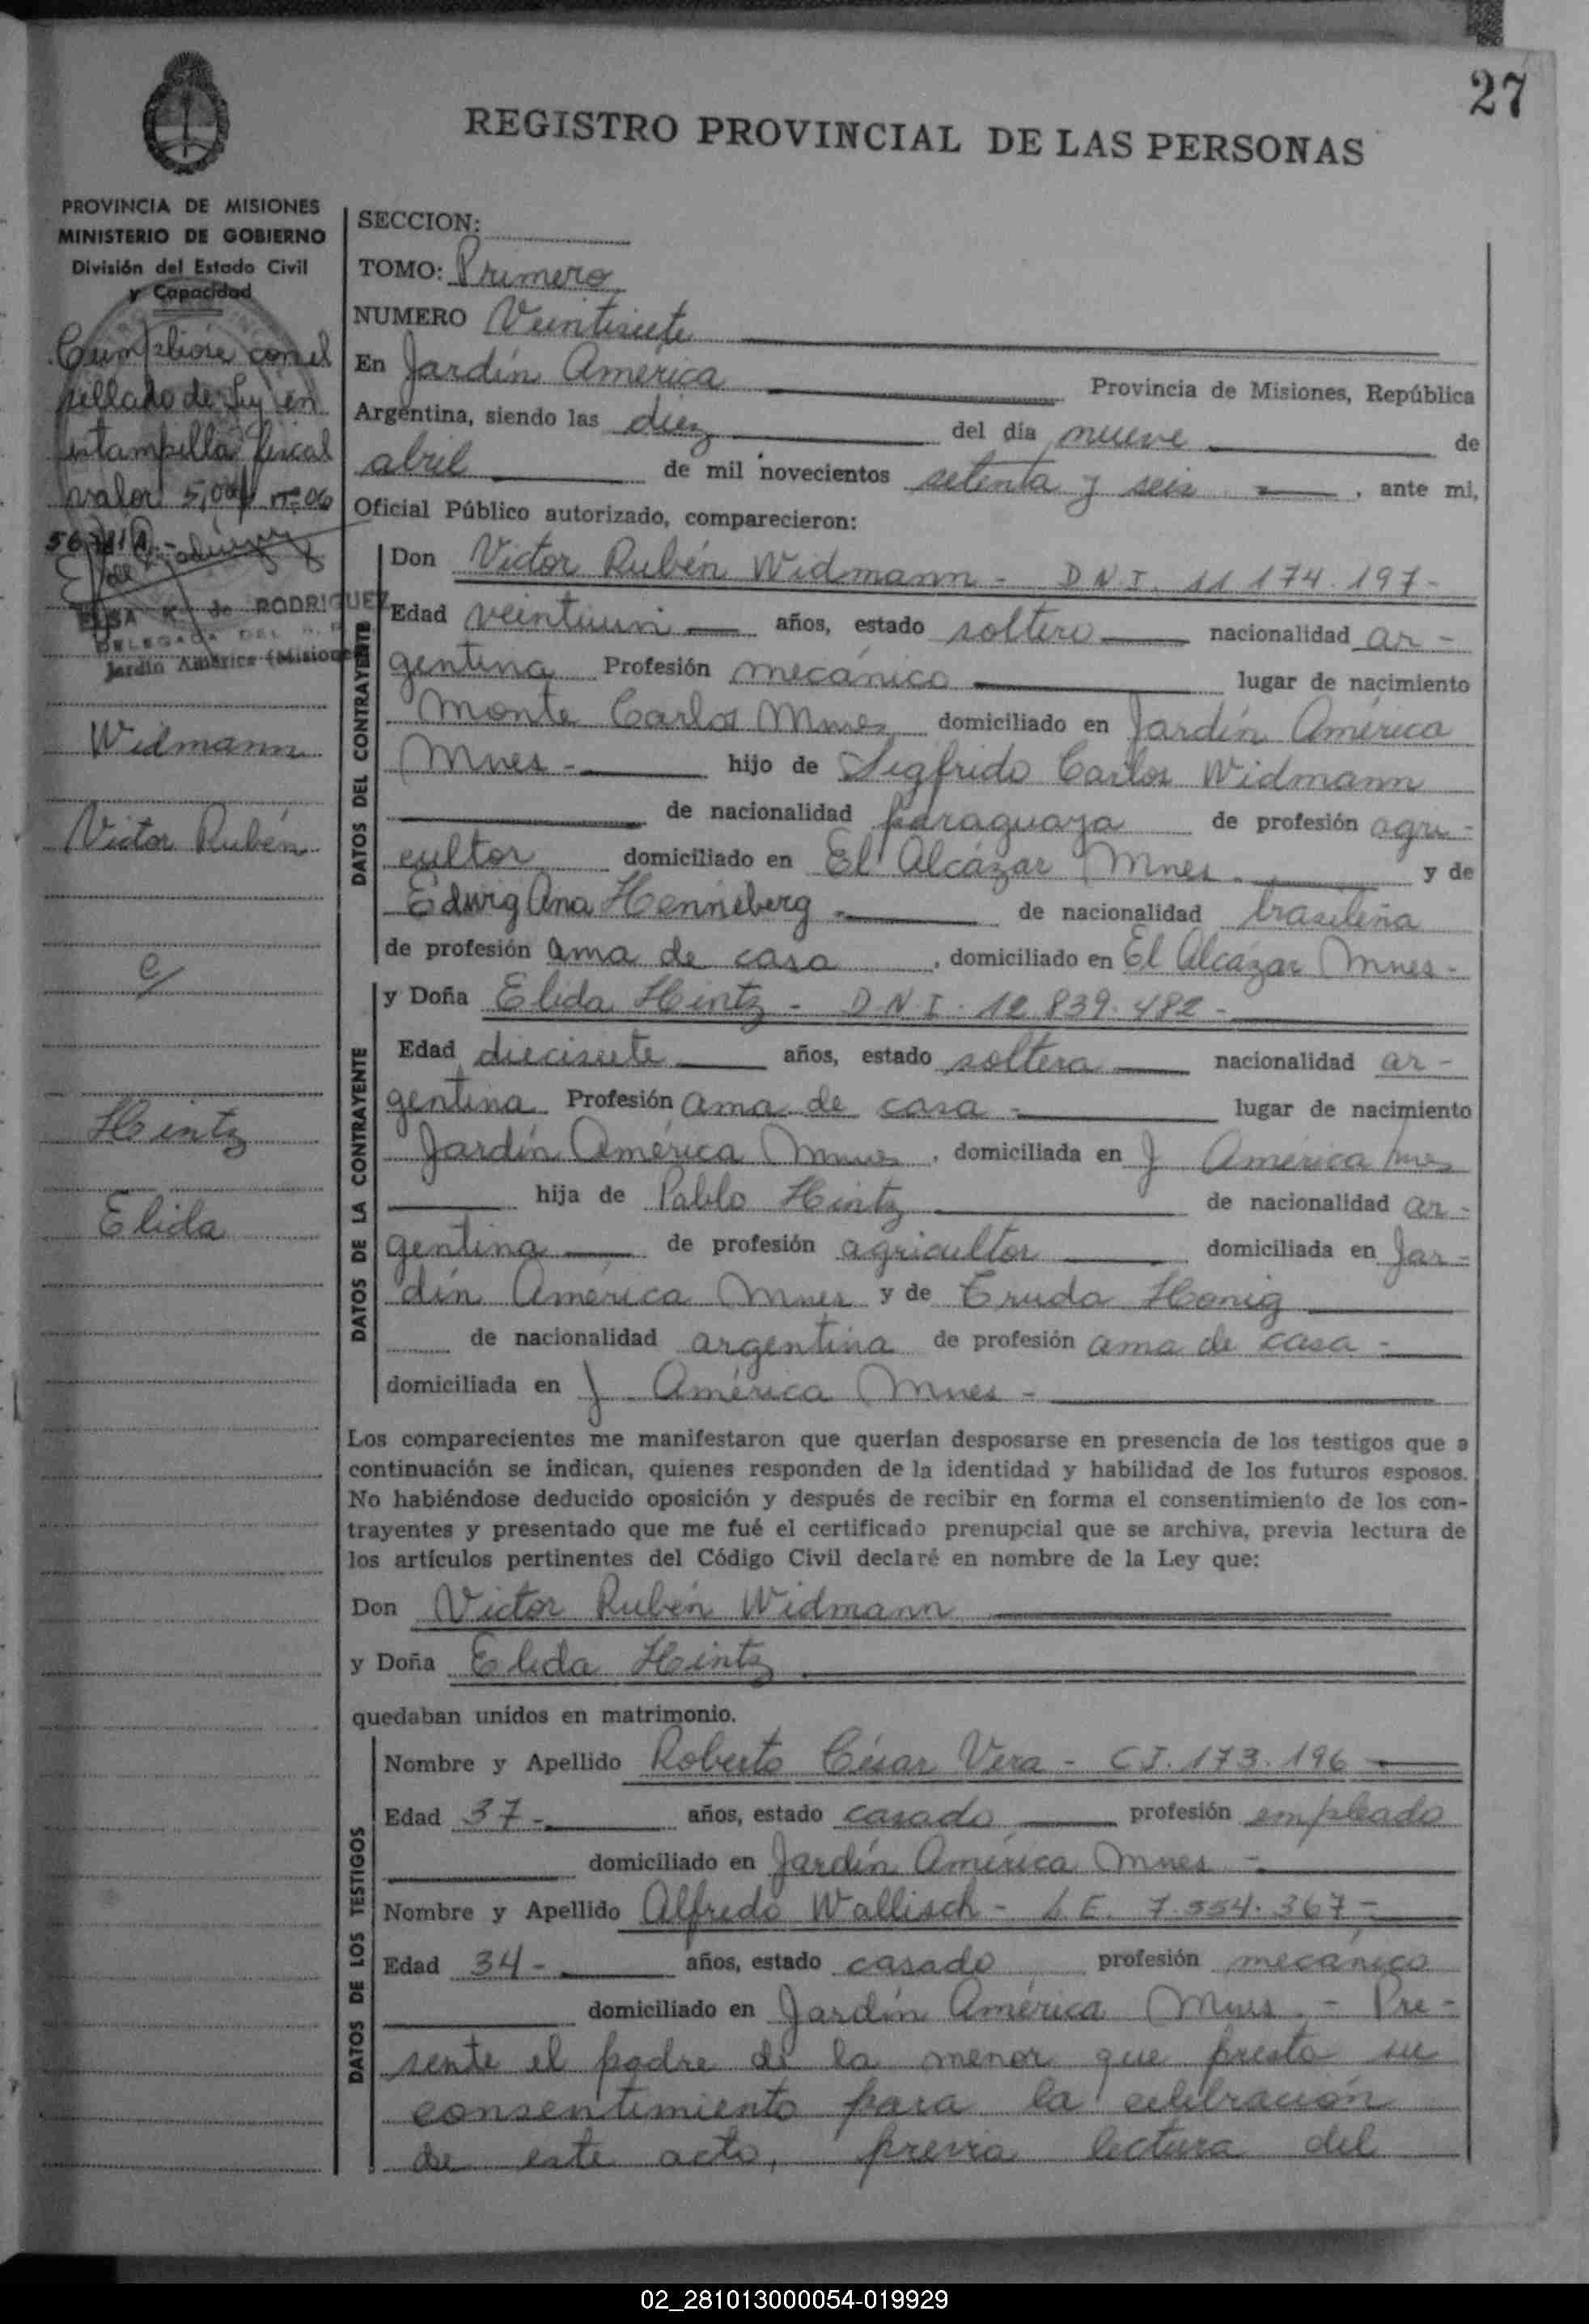 27
REGISTRO PROVINCIAL DE LAS PERSONAS
PROVINCIA DE MISIONES
MINISTERIO DE GOBIERNO
División del Estado Civil
y Capacidad
Cumplióse con el
sellado de Ley en
estampilla fiscal
valor 5,00 nº 06
ELSA K. de RODRIGUEZ
DELEGADA DEL R. P.
Jardín América (Misiones)
Widmann
Victor Rubén
c/
Hintz
Elida
SECCION:
TOMO: Primero
NUMERO Veintisiete
En Jardín América Provincia de Misiones, República
Argentina, siendo las diez del día nueve de
abril de mil novecientos setenta y seis, ante mi,
Oficial Público autorizado, comparecieron:
DATOS DEL CONTRAYENTE
Don Victor Rubén Widmann - D.N.I. 11.174.197-
Edad veintiun años, estado soltero nacionalidad ar-
gentina Profesión mecánico lugar de nacimiento
Monte Carlos Mnes domiciliado en Jardín América
Mnes - hijo de Sigfrido Carlos Widmann
de nacionalidad paraguaya de profesión agri-
cultor domiciliado en El Alcázar Mnes. y de
Edwig Ana Henneberg - de nacionalidad brasileña
de profesión ama de casa, domiciliado en El Alcázar Mnes-
DATOS DE LA CONTRAYENTE
y Doña Elida Hintz - D.N.I. 12.839.482-
Edad diecisiete años, estado soltera nacionalidad ar-
gentina Profesión ama de casa - lugar de nacimiento
Jardín América Mnes, domiciliada en J. América Mnes
hija de Pablo Hintz de nacionalidad ar-
gentina de profesión agricultor domiciliada en Jar-
dín América Mnes y de Truda Honig
de nacionalidad argentina de profesión ama de casa -
domiciliada en J. América Mnes -
Los comparecientes me manifestaron que querían desposarse en presencia de los testigos que a
continuación se indican, quienes responden de la identidad y habilidad de los futuros esposos.
No habiéndose deducido oposición y después de recibir en forma el consentimiento de los con-
trayentes y presentado que me fué el certificado prenupcial que se archiva, previa lectura de
los artículos pertinentes del Código Civil declaré en nombre de la Ley que:
Don Victor Rubén Widmann
y Doña Elida Hintz
quedaban unidos en matrimonio.
DATOS DE LOS TESTIGOS
Nombre y Apellido Roberto César Vera - C.I. 173.196
Edad 37- años, estado casado profesión empleado
domiciliado en Jardín América Mnes -
Nombre y Apellido Alfredo Wallisch - L.E. 7.554.367-
Edad 34- años, estado casado profesión mecánico
domiciliado en Jardín América Mnes. - Pre-
sente el padre de la menor que presta su
consentimiento para la celebración
de este acto, previa lectura del
02_281013000054-019929